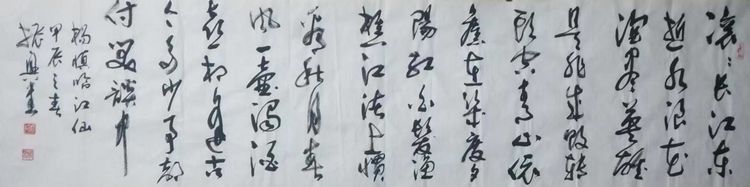 滚〻长江东
逝水浪花
淘尽英雄
是非成败转
头空青山依
旧在几度夕
陽红白髮渔
樵江渚上惯
看秋月春
风一壶濁酒
喜相逢古
今多少事都
付笑談中
楊慎临江仙
甲辰之春